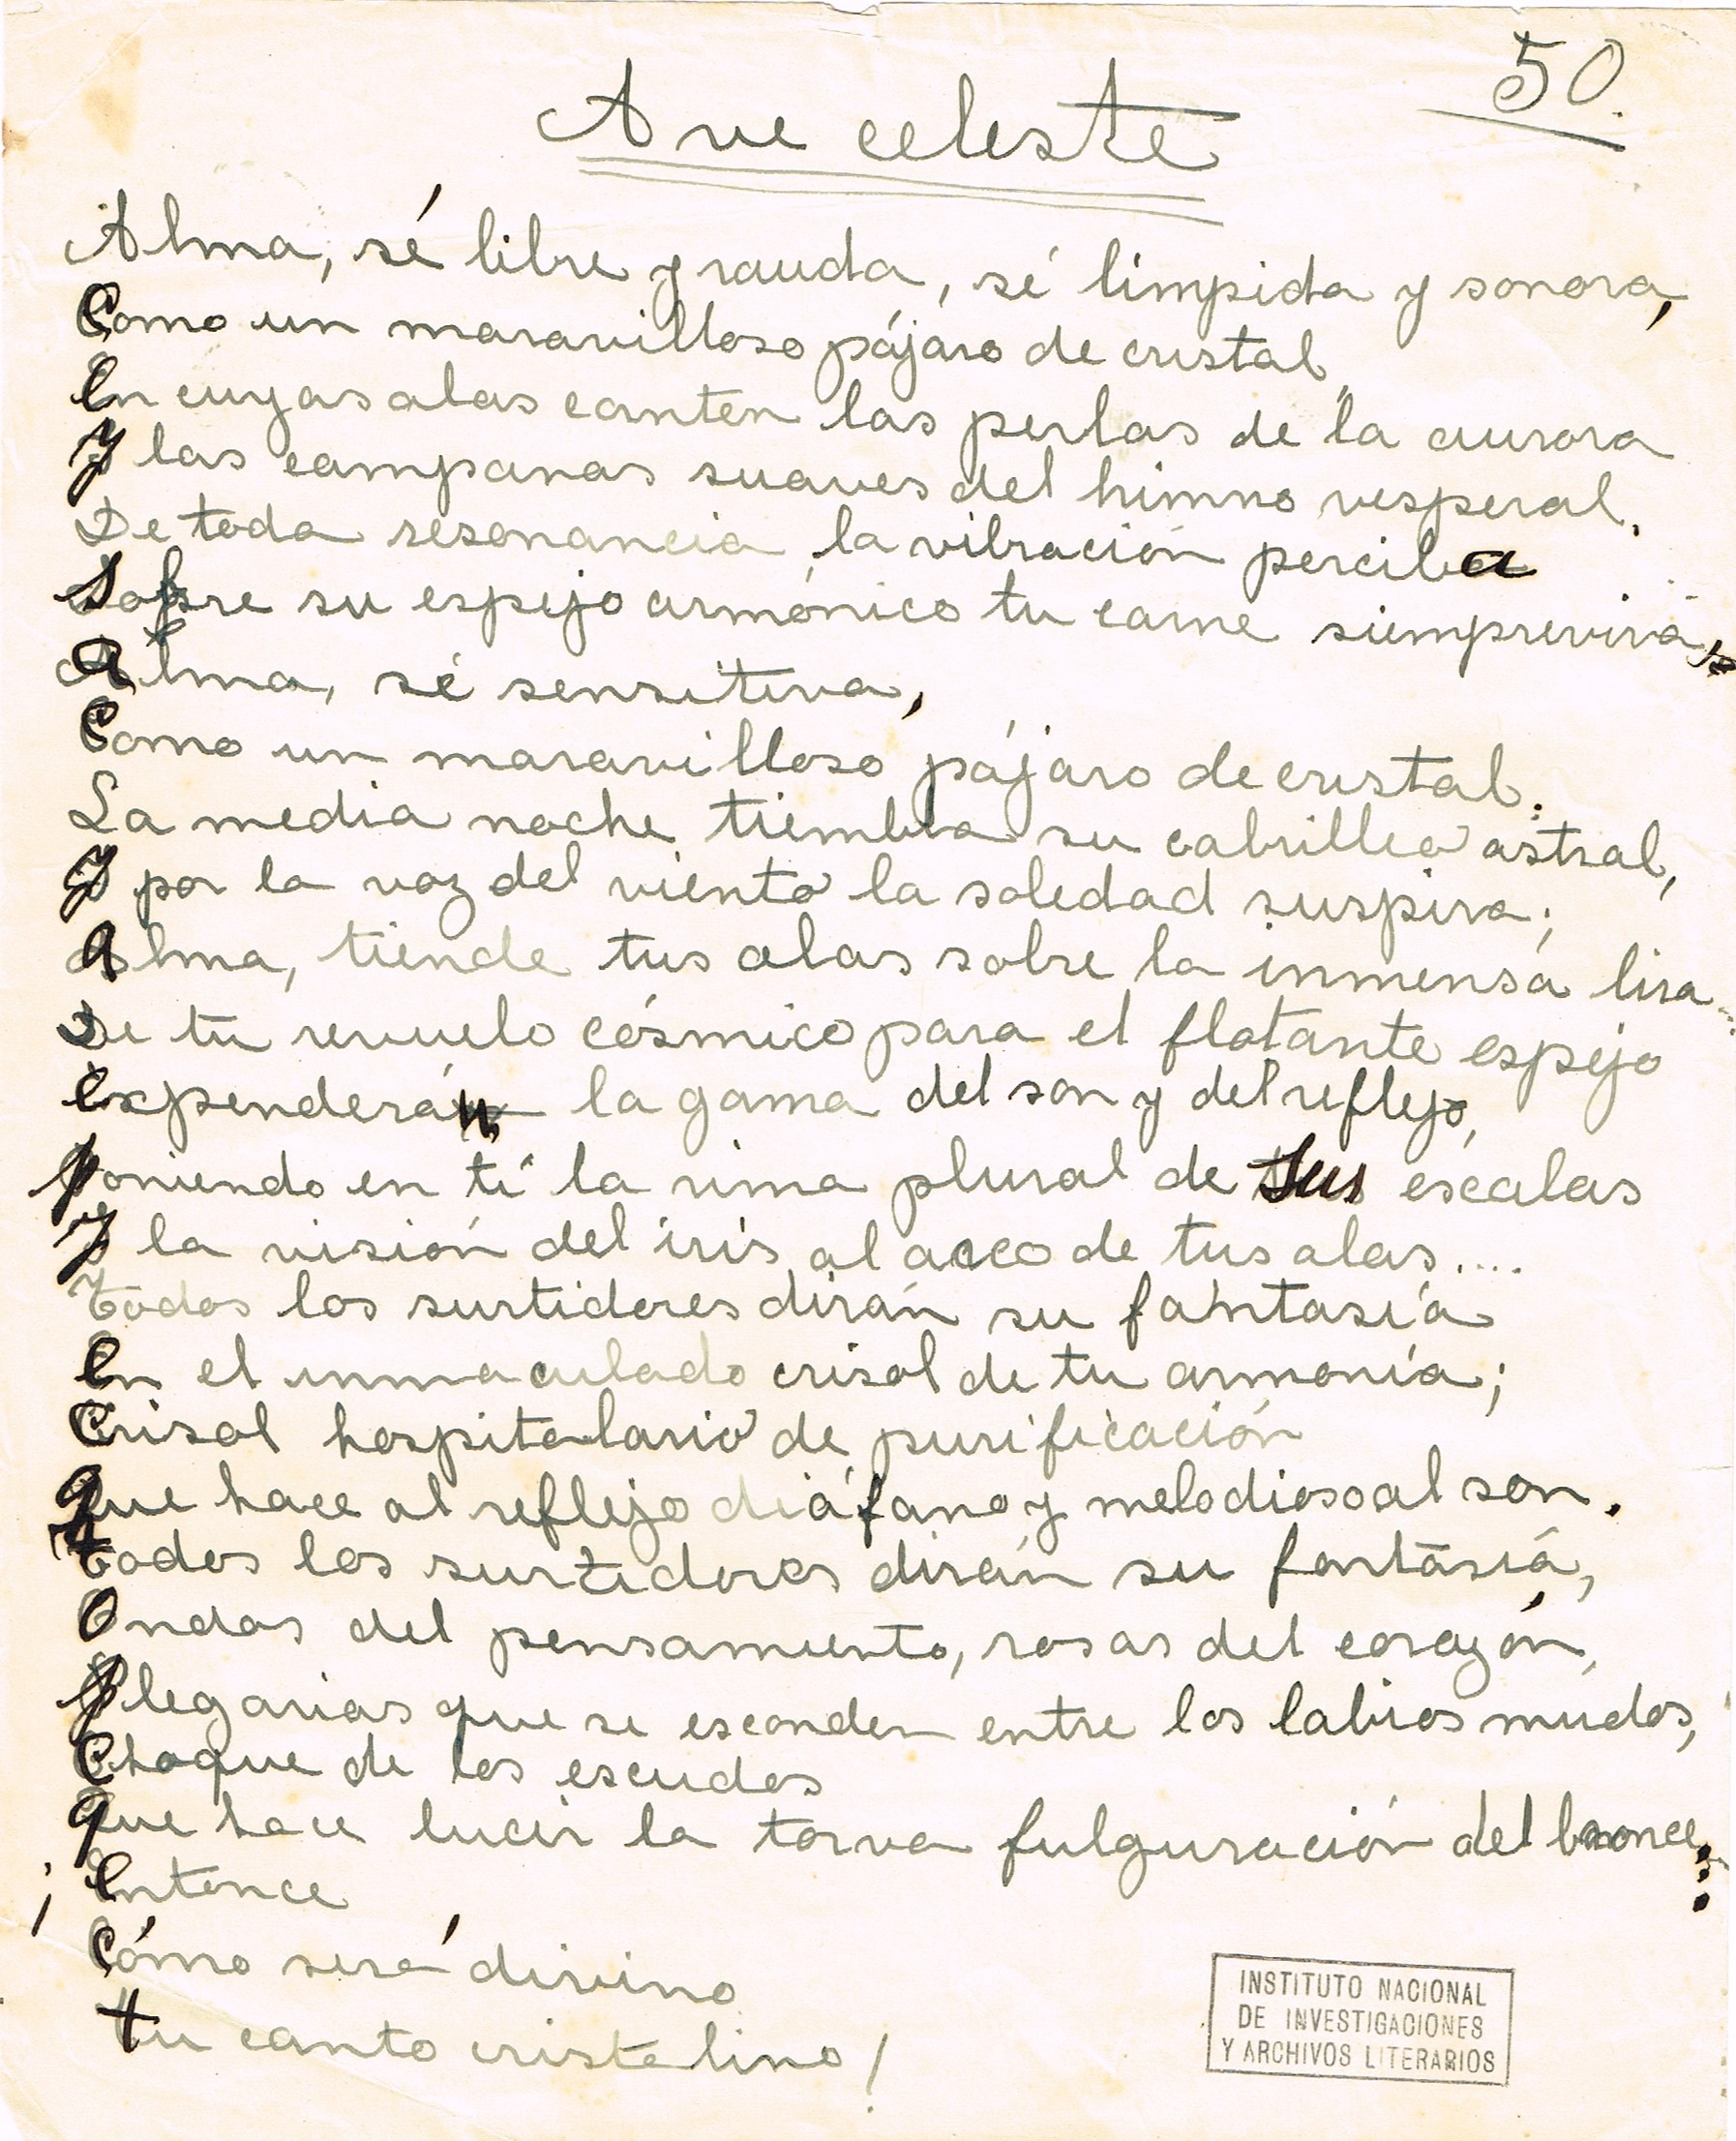 50.
Ave celeste
Alma, sé libre y rauda, sé límpida y sonora,
como un maravilloso pájaro de cristal,
en cuyas alas canten las perlas de la aurora
y las campanas suaves del himno vesperal.
De toda resonancia la vibración perciba
sobre su espejo armónico tu carne siempreviva,
alma, sé sensitiva,
como un maravilloso pájaro de cristal.
La media noche tiembla su cabrilleo astral,
y por la voz del viento la soledad suspira;
alma, tiende tus alas sobre la inmensa lira...
De tu revuelo cósmico para el flotante espejo
expenderán la gama del son y del reflejo,
poniendo en ti la rima plural de sus escalas
y la visión del iris al arco de tus alas....
Todos los surtidores dirán su fantasía
en el inmaculado crisol de tu armonía;
crisol hospitalario de purificación
que hace al reflejo diáfano y melodioso al son.
todos los surtidores dirán su fantasía,
ondas del pensamiento, rosas del corazón,
plegarias que se esconden entre los labios mudos,
choque de los escudos
que hace lucir la torva fulguración del bronce:
¡entonce
cómo será divino
tu canto cristalino!
INSTITUTO NACIONAL
DE INVESTIGACIONES
Y ARCHIVOS LITERARIOS